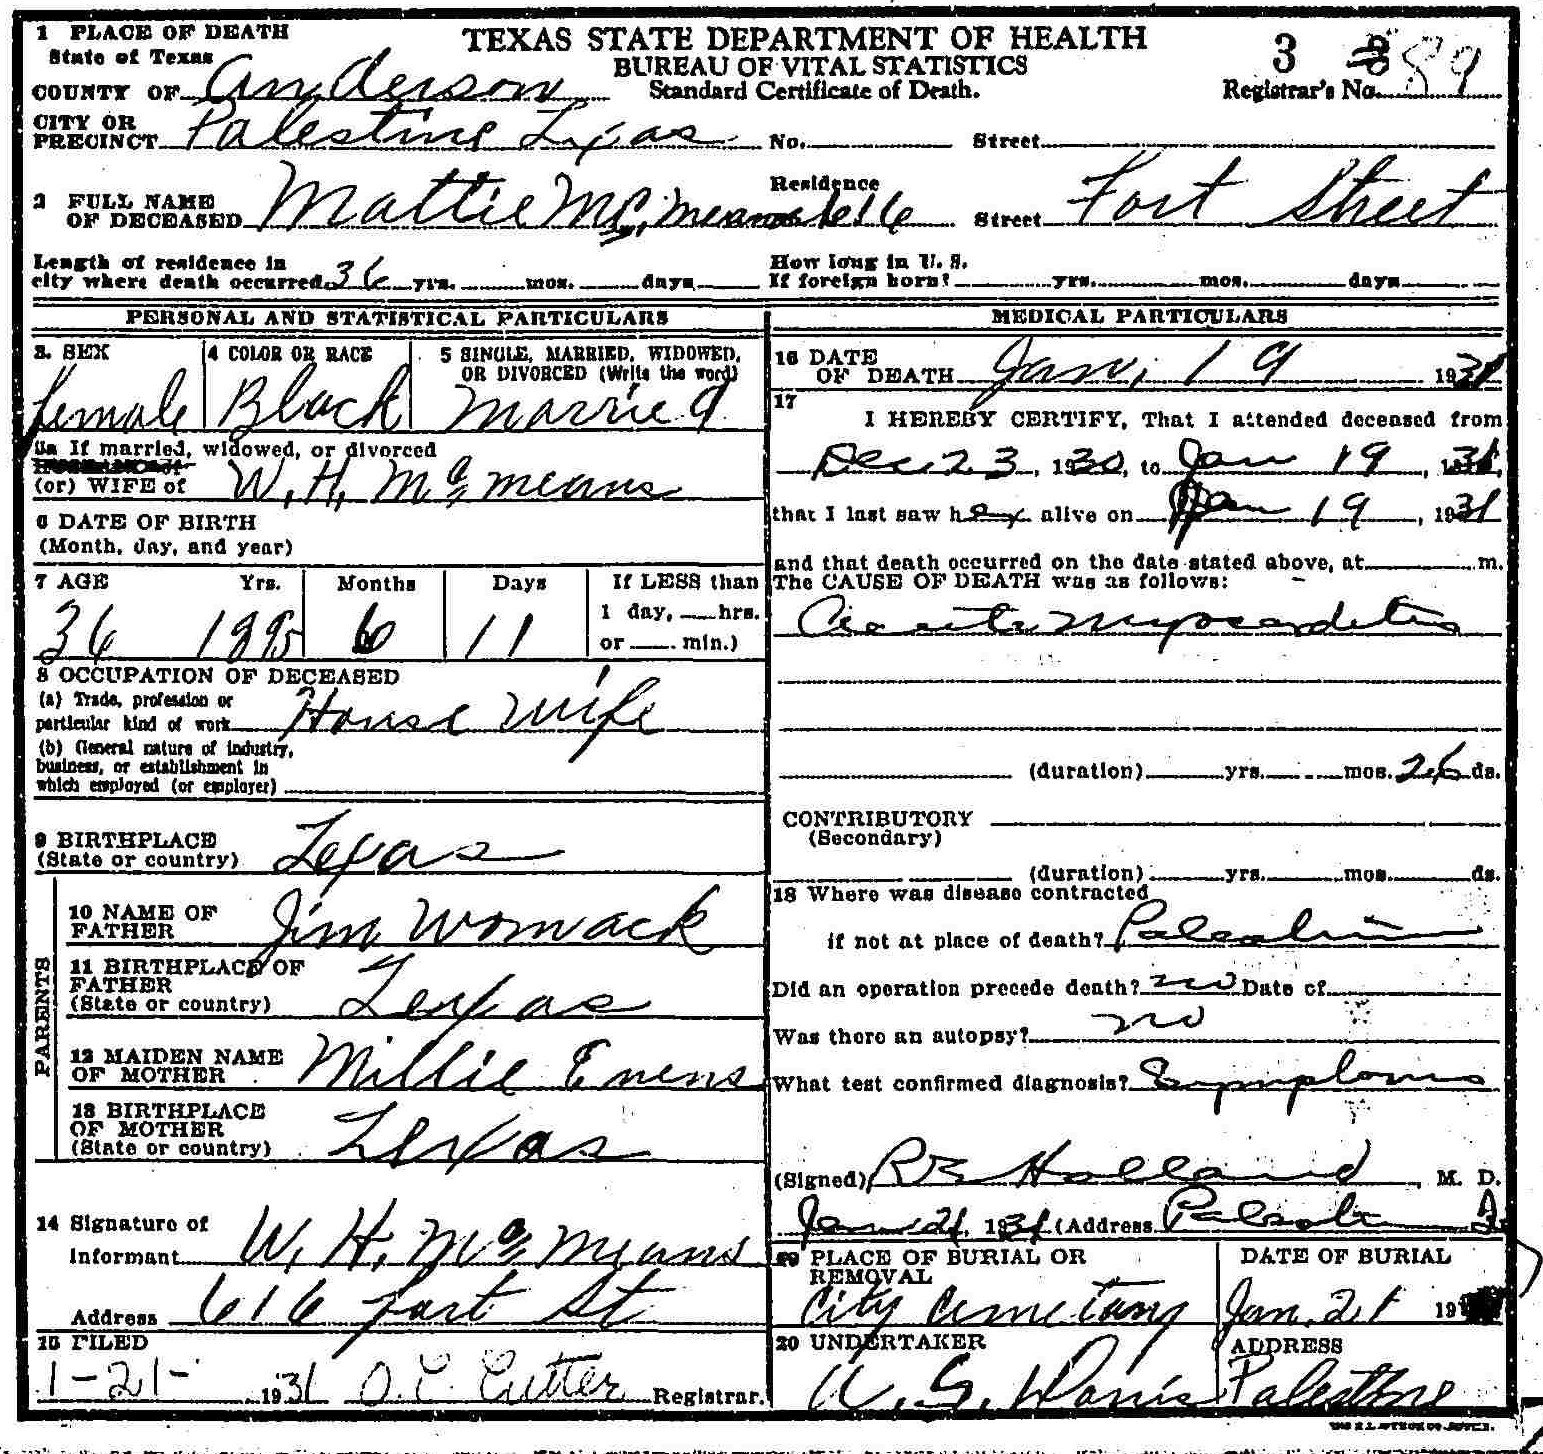 1 PLACE OF DEATH
State of Texas
COUNTY OF Anderson
CITY OR
PRECINCT Palestine Texas
TEXAS STATE DEPARTMENT OF HEALTH
BUREAU OF VITAL STATISTICS
Standard Certificate of Death.
3
Registrar's No. 89
No. Street
2 FULL NAME
OF DECEASED Mattie Mc. means
Residence
616 Street Fort Street
Length of residence in
city where death occurred 36 yrs. mos. days
How long in U. S.
If foreign born? yrs. mos. days
PERSONAL AND STATISTICAL PARTICULARS
3. SEX
female
4 COLOR OR RACE
Black
5 SINGLE, MARRIED, WIDOWED,
OR DIVORCED (Write the word)
Married
5a If married, widowed, or divorced
(or) WIFE of W. H. Mc. means
6 DATE OF BIRTH
(Month, day, and year)
7 AGE Yrs. Months Days
36 1895 6 11
If LESS than
1 day, hrs.
or min.)
8 OCCUPATION OF DECEASED
(a) Trade, profession or
particular kind of work House wife
(b) General nature of industry,
business, or establishment in
which employed (or employer)
9 BIRTHPLACE
(State or country) Texas
PARENTS
10 NAME OF
FATHER Jim Womack
11 BIRTHPLACE OF
FATHER
(State or country) Texas
12 MAIDEN NAME
OF MOTHER Millie Evens
13 BIRTHPLACE
OF MOTHER
(State or country) Texas
14 Signature of
Informant W. H. Mc. means
Address 616 fort St
15 FILED
1-21- 1931 O. E. Cutter Registrar.
MEDICAL PARTICULARS
16 DATE
OF DEATH Jan, 19 1931
17
I HEREBY CERTIFY, That I attended deceased from
Dec 23, 1930, to Jan 19, 1931,
that I last saw her alive on Jan 19, 1931
and that death occurred on the date stated above, at m.
The CAUSE OF DEATH was as follows:
Acute Myocarditis
(duration) yrs. mos. 26 ds.
CONTRIBUTORY
(Secondary)
(duration) yrs. mos. ds.
18 Where was disease contracted
if not at place of death? Palestine
Did an operation precede death? no Date of
Was there an autopsy? no
What test confirmed diagnosis? Symptoms
(Signed) RB Holland, M. D.
Jan 21, 1931 (Address Palestine
19 PLACE OF BURIAL OR
REMOVAL
City Cemetary
DATE OF BURIAL
Jan. 21 19
20 UNDERTAKER
ADDRESS
Palestine